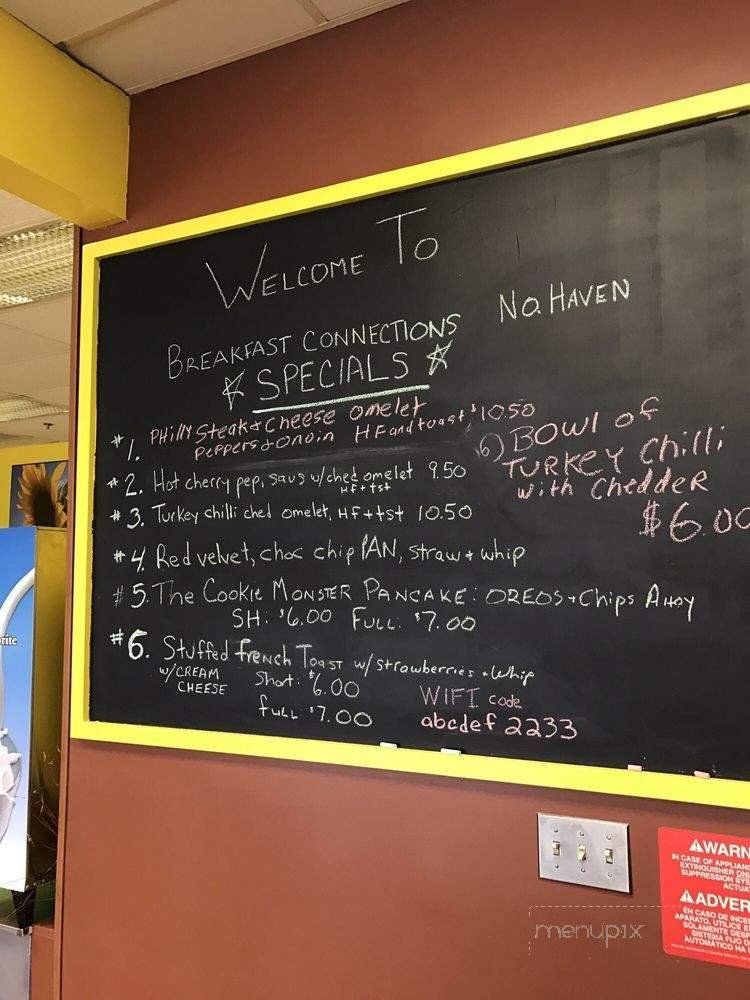 WELCOME TO
No. HAVEN
BREAKFAST CONNECTIONS
SPECIALS
#1. PHilly Steak & Cheese omelet $10.50
Peppers & Onoin HF and toast
#2. Hot cherry pep, saus w/ched omelet 9.50
HF + tst
#3. Turkey chilli ched omelet, HF + tst 10.50
#4. Red velvet, choc chip PAN, straw + whip
#5. The Cookie Monster Pancake: OREOS + Chips Ahoy
SH: $6.00 FULL: $7.00
#6. Stuffed French Toast w/ strawberries + Whip
w/CREAM CHEESE
Short: $6.00
full $7.00
6) BOWl of
TURKEY Chilli
with Chedder
$6.00
WIFI code
abcdef 2233
rite
WARN
IN CASE OF APPLIANC
EXTINGUISHER ON
SUPPRESSION SYS
ACTUA
ADVER
EN CASO DE INCE
APARATO, UTILICE E
SÓLAMENTE DESP
SISTEMA FIJO D
AUTOMÁTICO HA
menupix